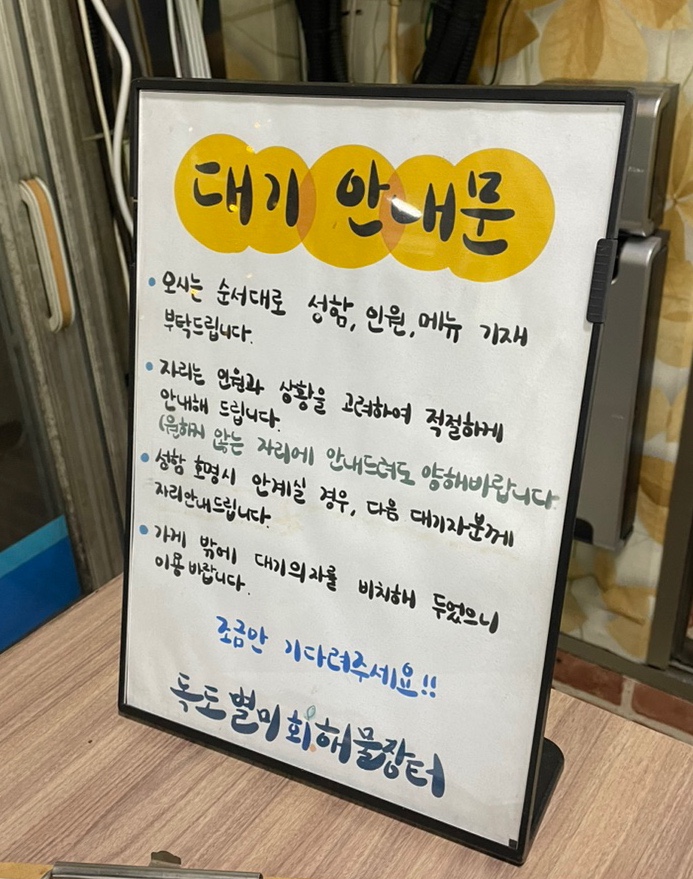 대기 안내문
• 오시는 순서대로 성함, 인원, 메뉴 기재
부탁드립니다.
• 자리는 인원과 상황을 고려하여 적절하게
안내해 드립니다.
(원하지 않는 자리에 안내드려도 양해바랍니다.
• 성함 호명시 안계실 경우, 다음 대기자분께
자리안내드립니다.
• 가게 밖에 대기의자를 비치해 두었으니
이용 바랍니다.
조금만 기다려주세요!!
독도별미회.해물장터